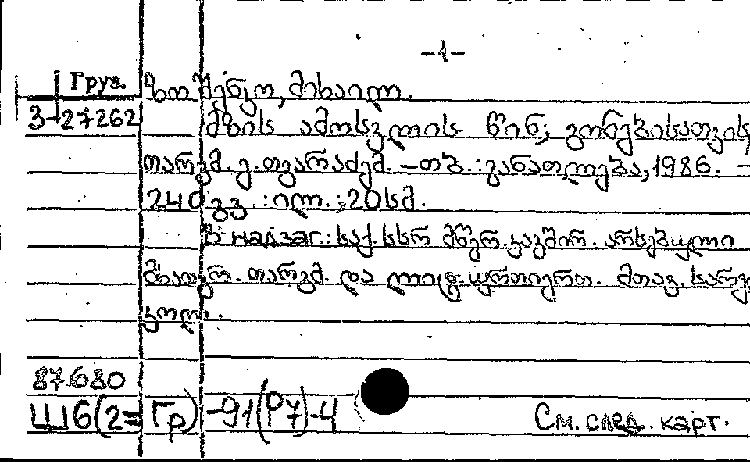 -1-
Груз. ზოშენკო, მიხაილ.
3-27262 მზის ამოსვლის წინ;
თარგმ. გ. თვარაძემ. - თბ.: განათლება, 1986. -
240 გვ. : ილ. ; 20 სმ.
В надзаг.: საქ. სსრ მწერ. კავშირ. არსებული
მხატვრ. თარგმ. და ლიტ. ურთიერთ. მთავ. სარედ
კოლ.
87.680
Ш6(2=Гр)-91(Р7)-4 См. след. карт.